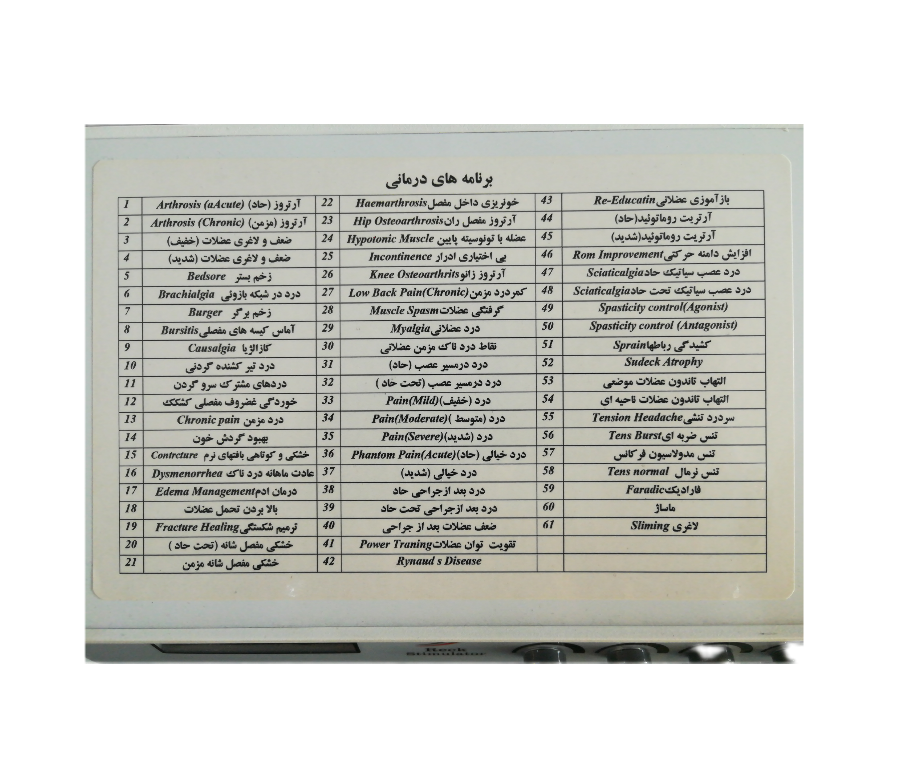 برنامه های درمانی
1 آرتروز (حاد) Arthrosis (aAcute)
2 آرتروز (مزمن) Arthrosis (Chronic)
3 ضعف و لاغری عضلات (خفیف)
4 ضعف و لاغری عضلات (شدید)
5 زخم بستر Bedsore
6 درد در شبکه بازوئی Brachialgia
7 زخم برگر Burger
8 آماس کیسه های مفصلی Bursitis
9 کازالژیا Causalgia
10 درد تیر کشنده گردنی
11 دردهای مشترک سرو گردن
12 خوردگی غضروف مفصلی کشکک
13 درد مزمن Chronic pain
14 بهبود گردش خون
15 خشکی و کوتاهی بافتهای نرم Contrcture
16 عادت ماهانه درد ناک Dysmenorrhea
17 درمان ادم Edema Management
18 بالا بردن تحمل عضلات
19 ترمیم شکستگی Fracture Healing
20 خشکی مفصل شانه (تحت حاد )
21 خشکی مفصل شانه مزمن
22 خونریزی داخل مفصل Haemarthrosis
23 آرتروز مفصل ران Hip Osteoarthrosis
24 عضله با تونوسیته پایین Hypotonic Muscle
25 بی اختیاری ادرار Incontinence
26 آرتروز زانو Knee Osteoarthrits
27 کمردرد مزمن Low Back Pain(Chronic)
28 گرفتگی عضلات Muscle Spasm
29 درد عضلانی Myalgia
30 نقاط درد ناک مزمن عضلانی
31 درد درمسیر عصب (حاد)
32 درد درمسیر عصب (تحت حاد )
33 درد (خفیف) Pain(Mild)
34 درد (متوسط ) Pain(Moderate)
35 درد (شدید) Pain(Severe)
36 درد خیالی (حاد) Phantom Pain(Acute)
37 درد خیالی (شدید)
38 درد بعد ازجراحی حاد
39 درد بعد ازجراحی تحت حاد
40 ضعف عضلات بعد از جراحی
41 تقویت توان عضلات Power Traning
42 Rynaud s Disease
43 بازآموزی عضلانی Re-Educatin
44 آرتریت روماتوئید(حاد)
45 آرتریت روماتوئید(شدید)
46 افزایش دامنه حرکتی Rom Improvement
47 درد عصب سیاتیک حاد Sciaticalgia
48 درد عصب سیاتیک تحت حاد Sciaticalgia
49 Spasticity control(Agonist)
50 Spasticity control (Antagonist)
51 کشیدگی رباطها Sprain
52 Sudeck Atrophy
53 التهاب تاندون عضلات موضعی
54 التهاب تاندون عضلات ناحیه ای
55 سردرد تنشی Tension Headache
56 تنس ضربه ای Tens Burst
57 تنس مدولاسیون فرکانس
58 تنس نرمال Tens normal
59 فارادیک Faradic
60 ماساژ
61 لاغری Sliming
Beck
Stimulator